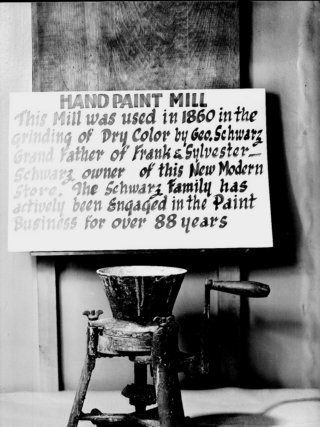 HAND PAINT MILL
This Mill was used in 1860 in the
grinding of Dry Color by Geo. Schwarz
Grand Father of Frank & Sylvester—
Schwarz owner of this New Modern
Store. The Schwarz Family has
actively been Engaged in the Paint
Business for over 88 years